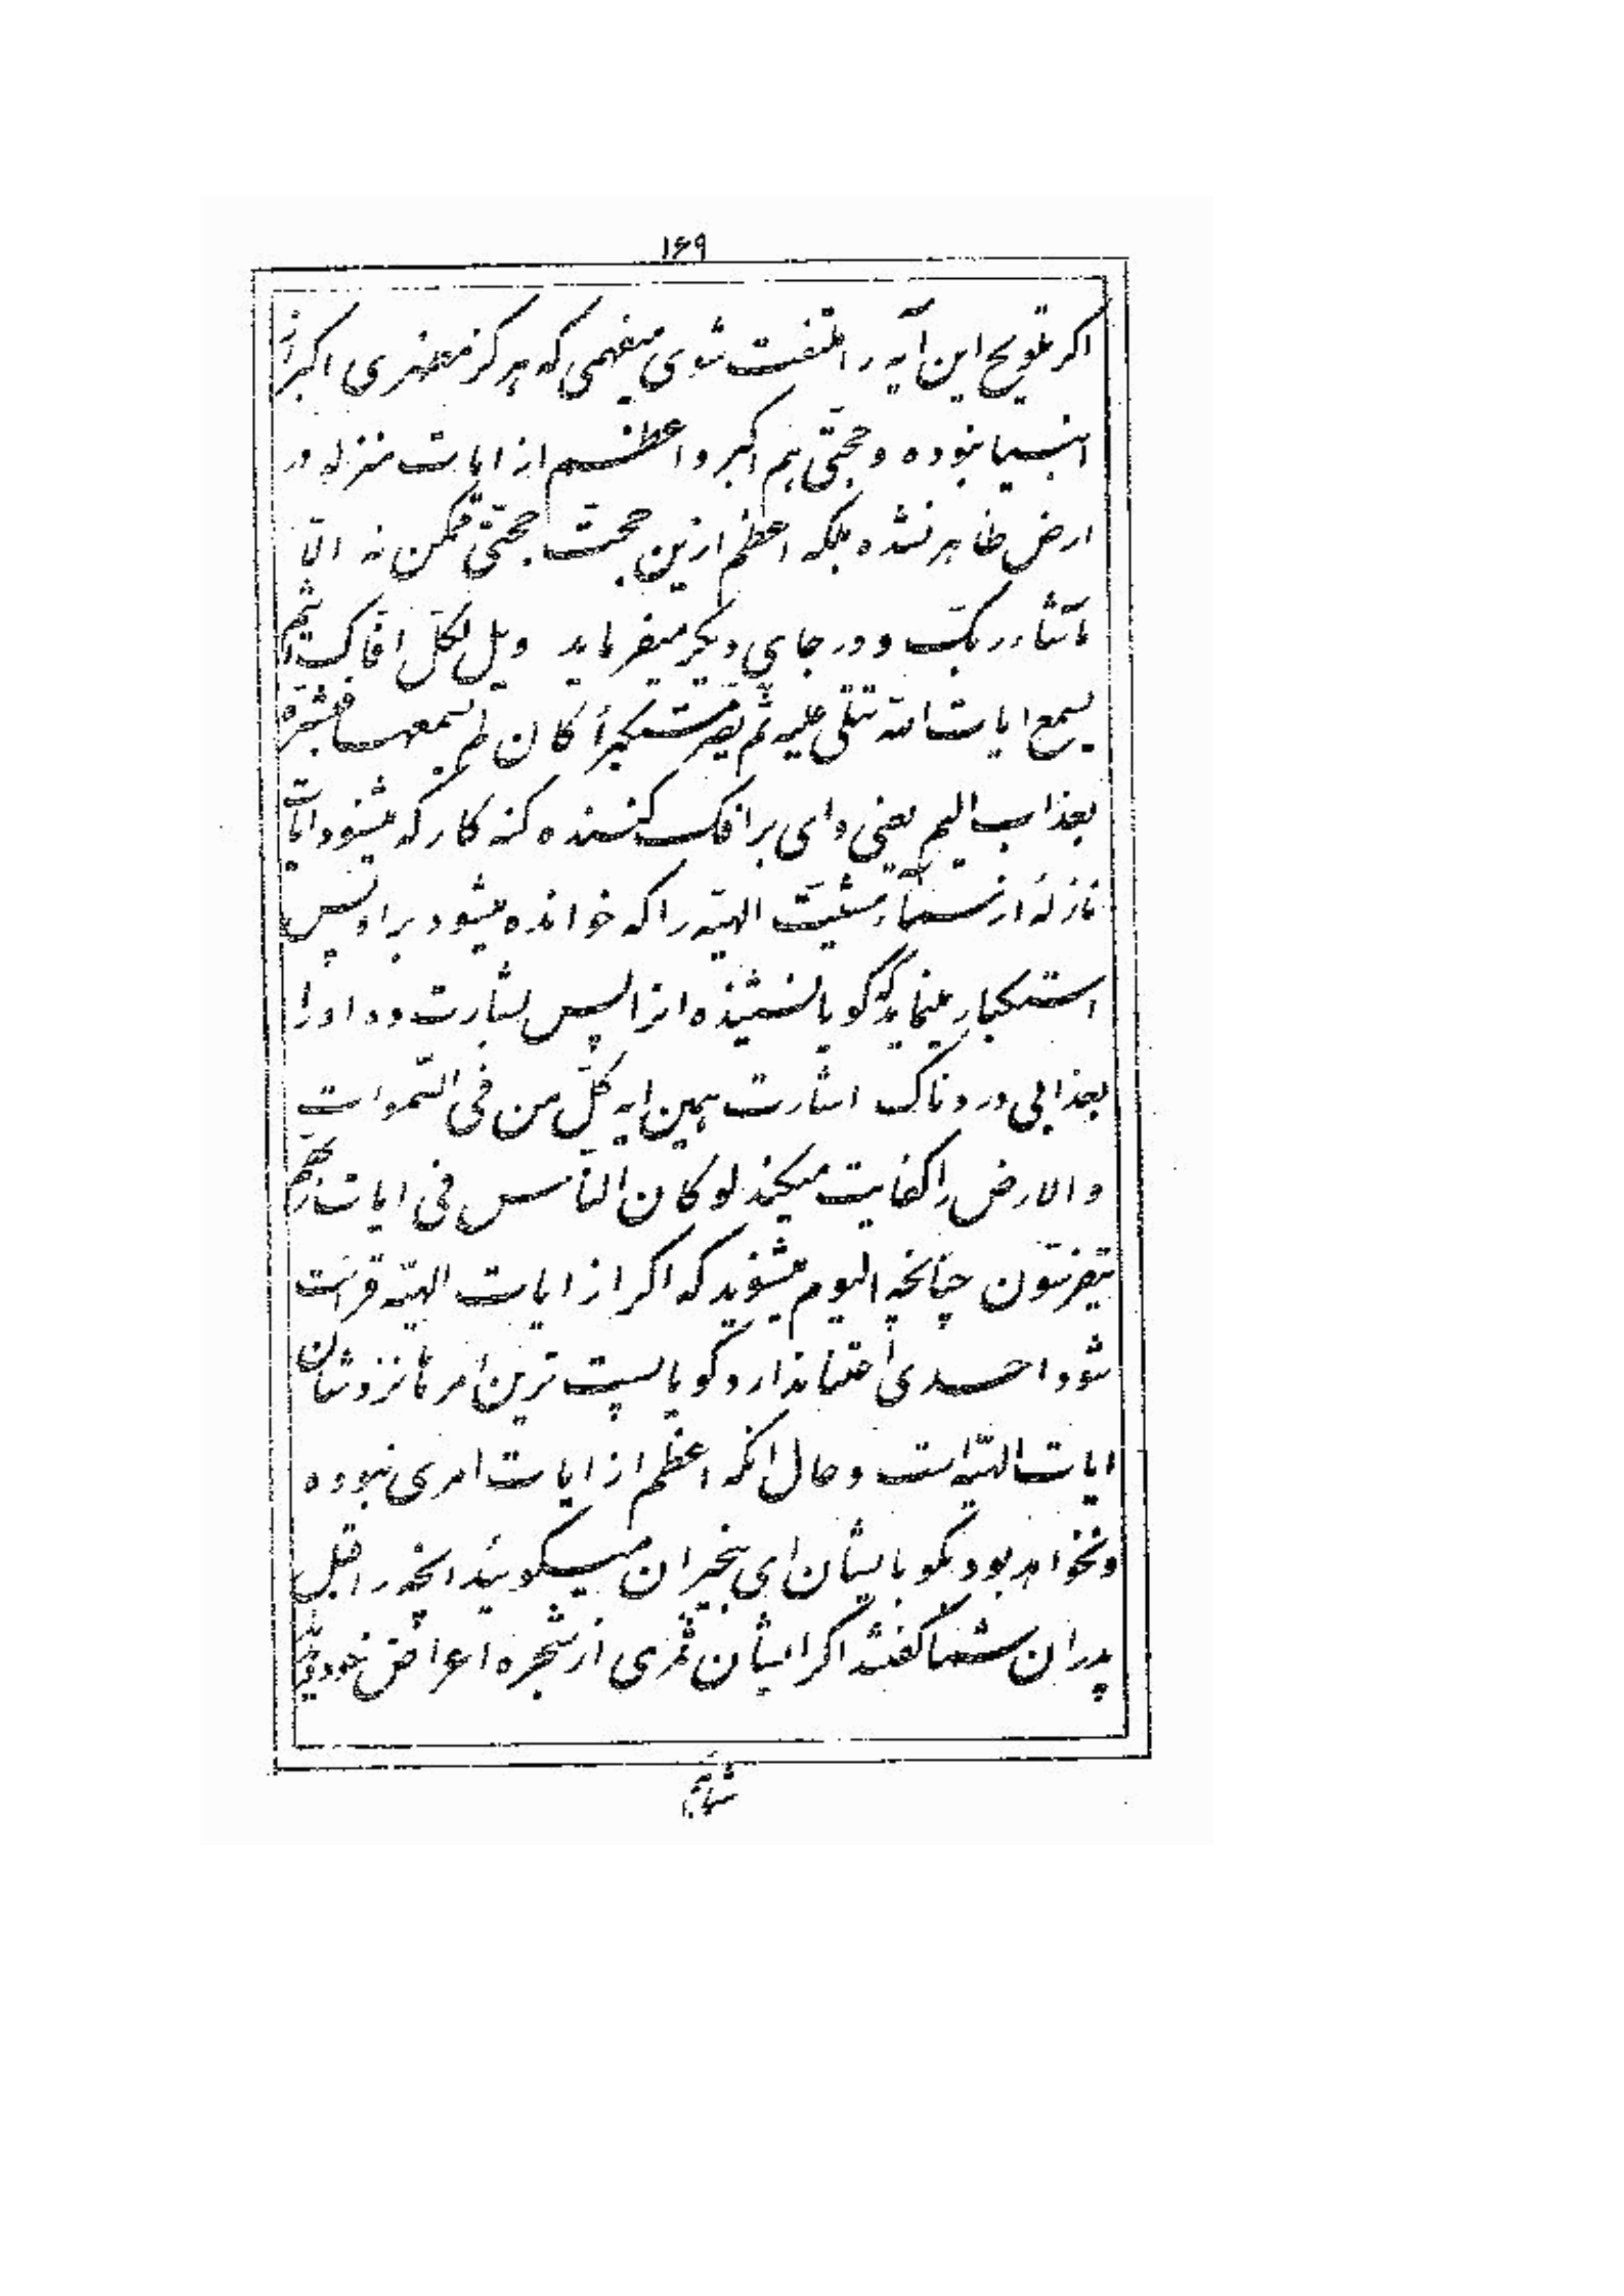 ۱۶۹
اکر تلویح این آیه را ملتفت شوی میفهمی که هرکز مظهری اکبر از
انبیا نبوده و حجّتی هم اکبر و اعظم از ایات منزله در
ارض ظاهر نشده بلکه اعظم ازین حجّت حجّتی ممکن نه الّا
ماشآء ربّک و در جای دیکر میفرماید ویل لکلّ افّاک اثیم
یسمع ایات اللّه تتلی علیه ثمّ یصرّ مستکبراً کان لم یسمعها فبشّره
بعذاب الیم یعنی وای بر افک کننده کنه کار که میشنود ایات
نازله از سمآء مشیّت الهیّه را که خوانده میشود بر او پس
استکبار مینماید کویا نشنیذه انرا پس بشارت ده او را
بعذابی دردناک اشارت همین ایه کلّ من فی السّموات
و الارض را کفایت میکند لو کان النّاس فی ایات ربّهم
یتفرّسون چنانچه الیوم میشنوید که اکر از ایات الهیّه قرائت
شود احدی اعتنا ندارد کویا پست ترین امرها نزدشان
ایات الهیّه است و حال انکه اعظم از ایات امری نبوده
و نخواهد بود بکو بایشان ای بیخبران میکوئید انچه را قبل
پدران شما کفتند اکر ایشان ثمری از شجره اعراض خود دیدند
شما هم